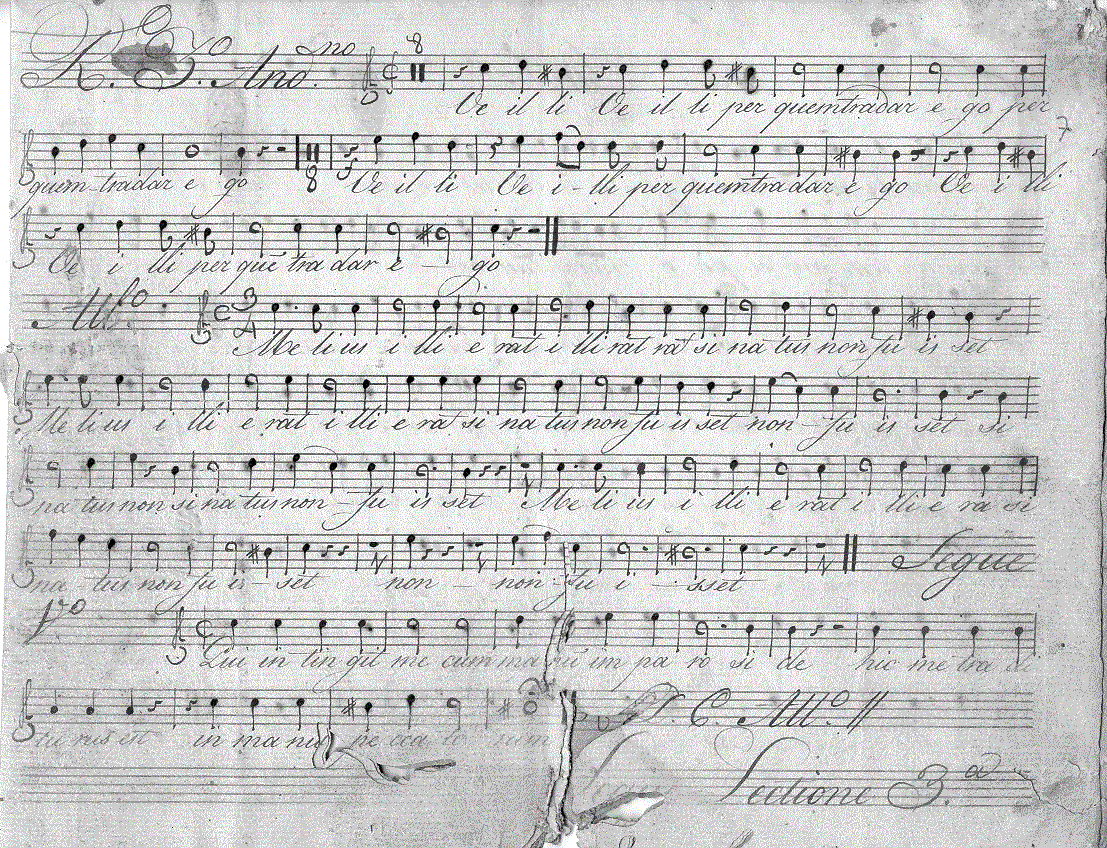 R. 3.o And.no 8
Ve il li Ve il li per quem tradar e go per
7
quem-tradar e go 8 Ve il li Ve i-lli per quem tradar e go Ve i lli
Ve i lli per quē tra dar e - go
All.o 3 4
Me li us i lli e rat i lli rat ra si na tus non fu is set
Me li us i lli e rat i lli e ra si na tus non fu is set non - fu is set si
na tus non si na tus non - fu is set Me li us i lli e rat i lli e ra si
na - tus non fu is - set non - non - fu i - sset Segue
Qui in tin git me cum ma num im pa ro si de hic me tra di
tu rus est in ma nus pe cca to rum D. C. All.o //
Lectione 3.a